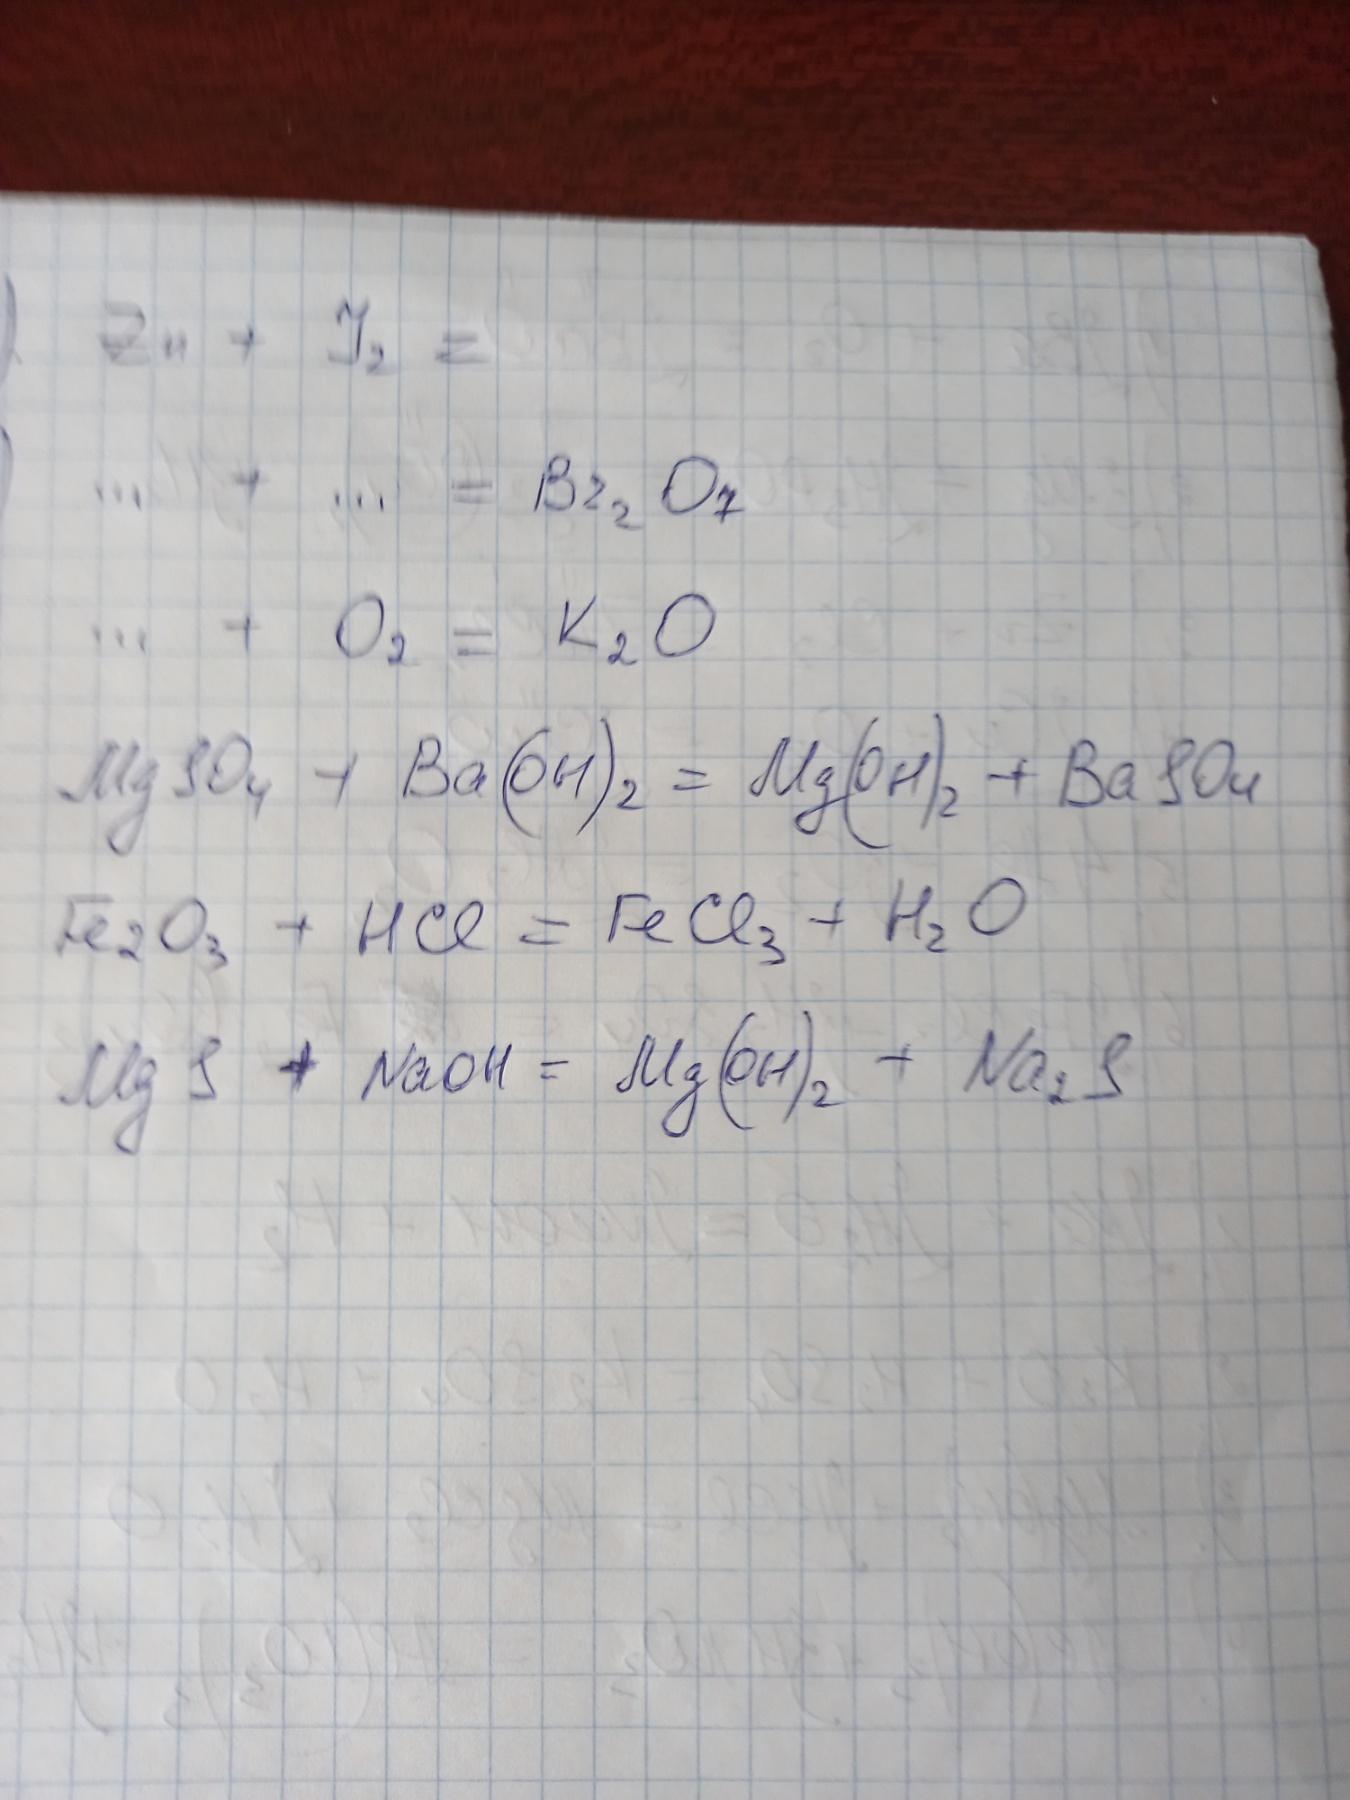 ) Zn + J₂ =
) ... + ... = Br₂O₇
... + O₂ = K₂O
MgSO₄ + Ba(OH)₂ = Mg(OH)₂ + BaSO₄
Fe₂O₃ + HCl = FeCl₃ + H₂O
MgS + NaOH = Mg(OH)₂ + Na₂S